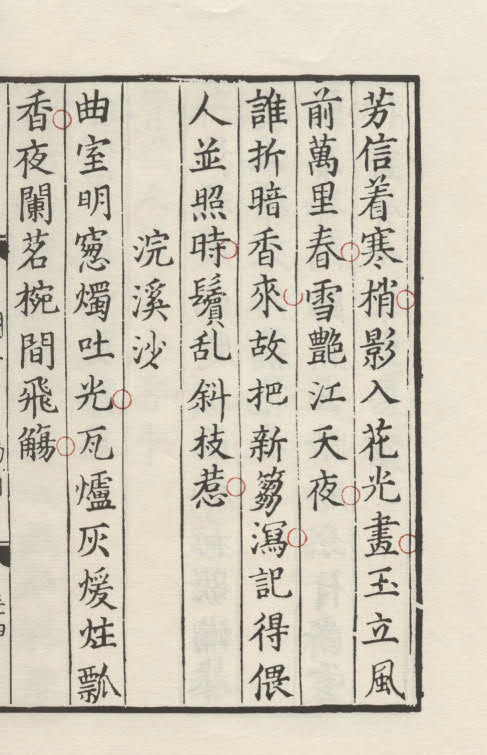 芳信着寒梢影入花光畫玉立風
前萬里春雪艷江天夜
誰折暗香來故把新篘瀉記得偎
人並照時鬢乱斜枝惹
浣溪沙
曲室明窓燭吐光瓦爐灰煖炷瓢
香夜闌茗椀間飛觴